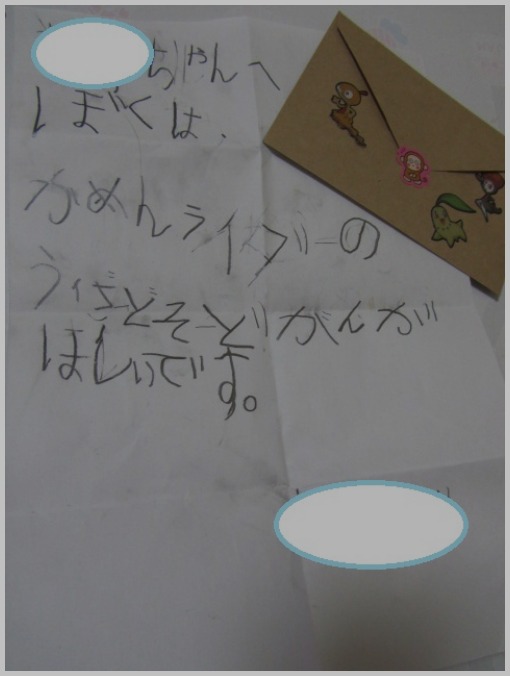 ちゃんへ
ぼくは、
かめんライダーの
うぃざどそーどがんが
ほしいです。